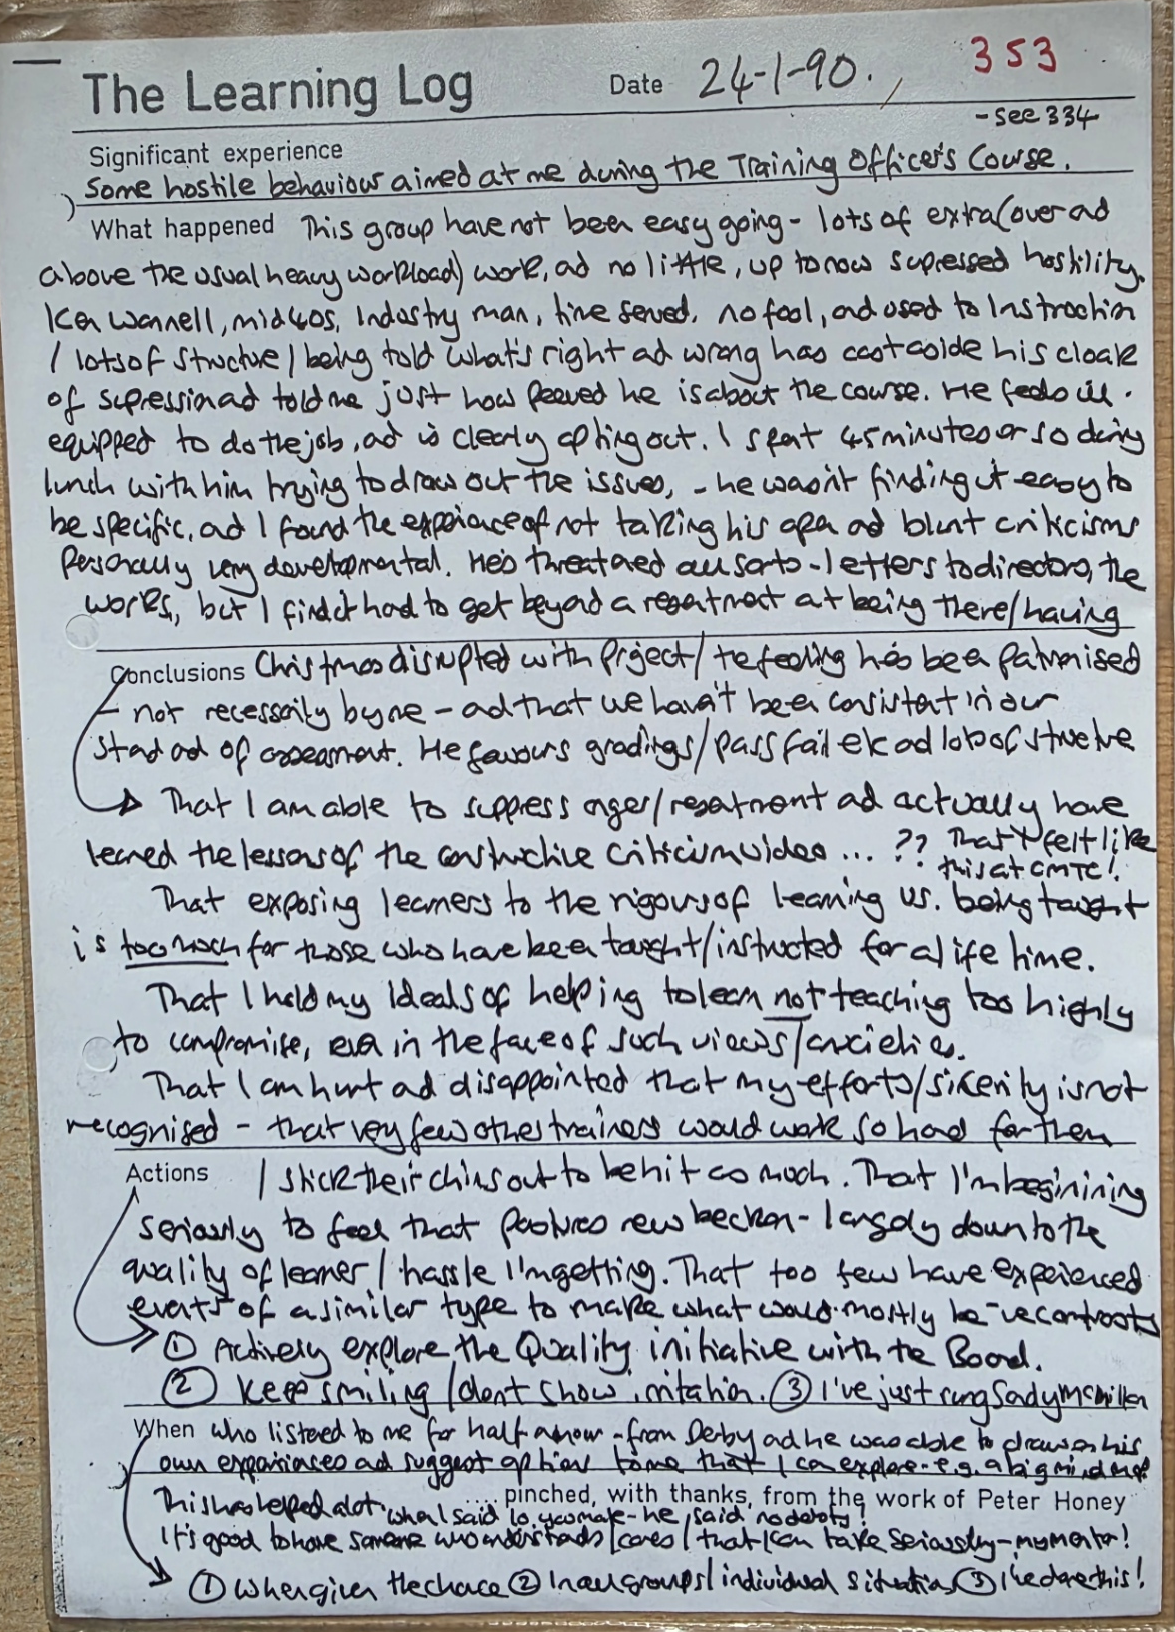 The Learning Log Date 24-1-90. 353
- see 334
Significant experience
Some hostile behaviour aimed at me during the Training Officer's Course.
What happened This group have not been easy going - lots of extra (over ad
above the usual heavy workload) work, ad no little, up to now supressed hostility.
Ken Wannell, mid 40s, Industry man, time served, no fool, ad used to Instruction
/ lots of structure / being told what's right ad wrong has cast aside his cloak
of supression ad told me just how peeved he is about the course. He feels ill.
equipped to do the job, ad is clearly opting out. I spent 45 minutes or so during
lunch with him trying to draw out the issues, - he wasn't finding it easy to
be specific, ad I found the experience of not taking his open ad blunt criticisms
Personally very developmental. He's threatened all sorts - letters to directors, the
works, but I find it hard to get beyond a resentment at being there/having
Conclusions Christmas disrupted with project/ the feeling he's been patronised
- not necessarily by me - ad that we haven't been consistent in our
standard of assessment. He favours gradings/pass fail etc ad lots of structure
That I am able to suppress anger/resentment ad actually have
learned the lessons of the constructive criticism video ... ?? That I felt like
this at CMTC!
That exposing learners to the rigours of learning vs. being taught
is too much for those who have been taught/instructed for a life time.
That I hold my ideals of helping to learn not teaching too highly
to compromise, even in the face of such views/anxieties.
That I am hurt ad disappointed that my efforts/sincerity is not
recognised - that very few other trainers would work so hard for them
Actions / stick their chins out to be hit so much. That I'm beginining
seriously to feel that pastures new beckon - largely down to the
quality of learner / hassle I'm getting. That too few have experienced
events of a similar type to make what would mostly be
① Actively explore the Quality initiative with the Board.
② Keep smiling / dont show irritation. ③ I've just rung Sandy McMillan
When who listened to me for half an hour - from Derby ad he was able to draw on his
own experiences ad suggest options to me that I can explore - e.g. a big mind map
... pinched, with thanks, from the work of Peter Honey
This has helped alot when I said so, you mate - he said no doubt!
It's good to have someone who understands / cares / that I can take seriously - my mentor!
① When given the chance ② In all groups / individual situations ③ I've done this!